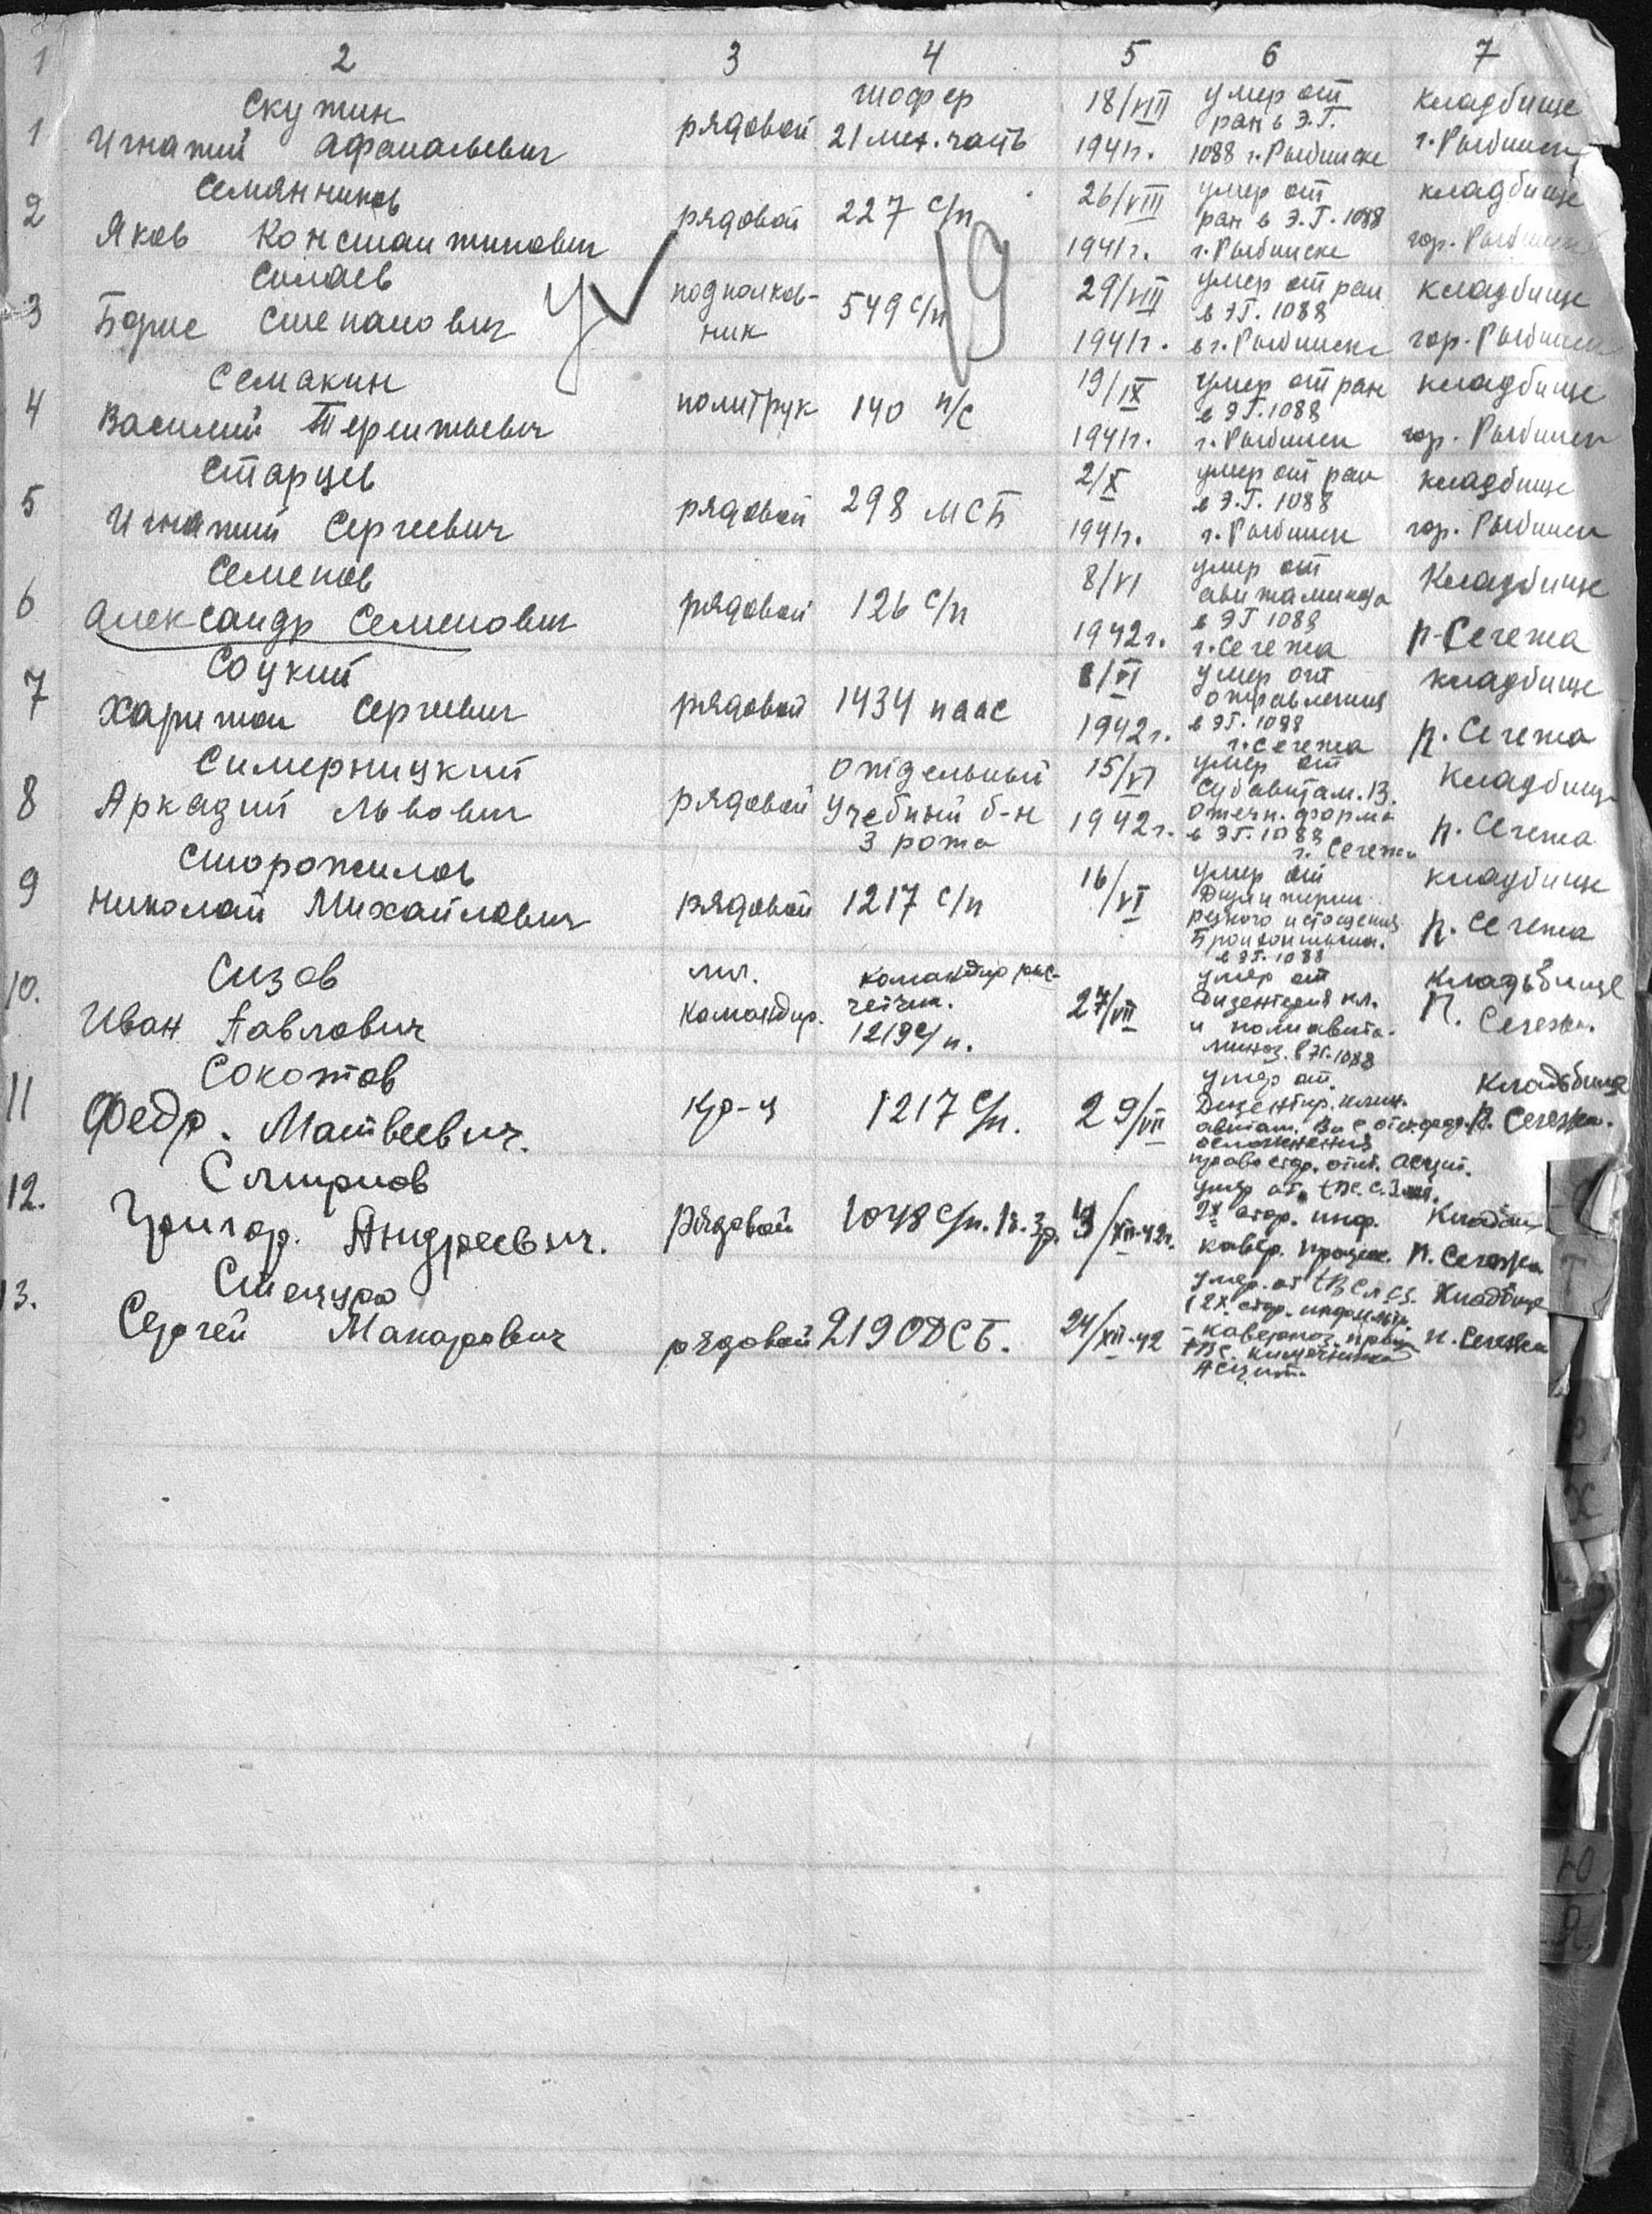 1 2 3 4 5 6 7
1 Скутин Игнатий Афанасьевич рядовой шофер 21 мех. часть 18/VIII 1941г. умер от ран в Э.Г. 1088 г. Рыбинске кладбище г. Рыбинск
2 Семянников Яков Константинович рядовой 227 с/п 26/VIII 1941г. умер от ран в Э.Г. 1088 г. Рыбинске кладбище гор. Рыбинск
3 Силаев Борис Степанович У подполковник 549 с/п 19 29/VIII 1941г. умер от ран в ЭГ. 1088 в г. Рыбинске кладбище гор. Рыбинск
4 Семакин Василий Терентьевич политрук 140 п/с 19/IX 1941г. умер от ран в ЭГ. 1088 г. Рыбинск кладбище гор. Рыбинск
5 Старцев Игнатий Сергеевич рядовой 298 МСБ 2/X 1941г. умер от ран в Э.Г. 1088 г. Рыбинск кладбище гор. Рыбинск
6 Семенов Александр Семенович рядовой 126 с/п 8/VI 1942г. умер от авитаминоза в ЭГ 1088 г. Сегежа Кладбище п. Сегежа
7 Соцкий Харитон Сергеевич рядовой 1434 паас 8/VI 1942г. умер от отравления в ЭГ. 1088 г. Сегежа кладбище п. Сегежа
8 Симерницкий Аркадий Львович рядовой отдельный учебный б-н 3 рота 15/VI 1942г. умер от субавитам. В. отечн. форма в ЭГ. 1088 г. Сегежа Кладбище п. Сегежа
9 Сторожилов Николай Михайлович рядовой 1217 с/п 16/VI умер от резкого истощения в ЭГ. 1088 кладбище п. Сегежа
10. Сизов Иван Павлович мл. командир. командир рас-четчик. 1219 с/п. 27/VII умер от Дизентерия кл. и полиавита-миноз. в ЭГ. 1088 Кладьбище П. Сегежа.
11 Сокотов Федр. Матвеевич. кр-ц 1217 с/п. 29/VII умер от. Дизентир. клин. авитам. осложнения право стор. асцит. Кладьбище п. Сегежа.
12. Смирнов Григор. Андреевич. Рядовой 1048 с/п. /XII-42г. умер от tbc. 2х стор. инф. кавер. процес. Кладбищ п. Сегежа
13. Стецура Сергей Макарович рядовой 219 ОДСБ. 24/XII-42 умер. от tbc 2х стор. инфильтр. -каверноз. проц. tbc. кишечника Асцит. Кладбище п. Сегежа